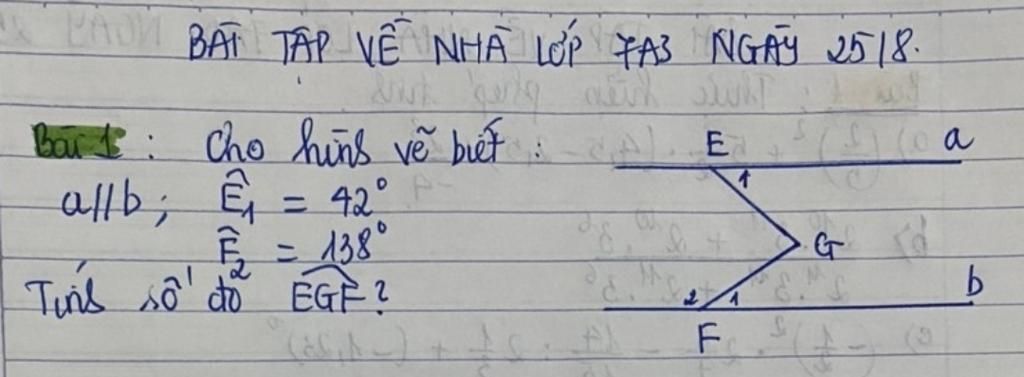 BÀI TẬP VỀ NHÀ LỚP 7A3 NGÀY 25/8.
Bài 1: Cho hình vẽ biết:
a//b; Ê₁ = 42°
F̂₂ = 138°
Tính số đo EGF?
E a
1
G
2 1 b
F